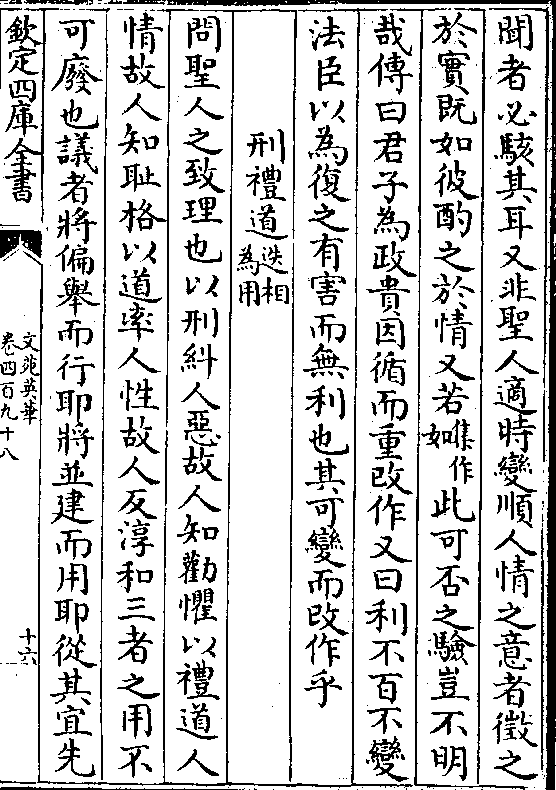 聞者必駭其耳又非聖人適時變順人情之意者徵之
於實既如彼酌之於情又若集作如此可否之驗豈不明
哉傳曰君子為政貴因循而重改作又曰利不百不變
法臣以為復之有害而無利也其可變而改作乎
刑禮道迭相為用
問聖人之致理也以刑糾人惡故人知勸懼以禮道人
情故人知耻格以道率人性故人反淳和三者之用不
可廢也議者將偏舉而行耶將並建而用耶從其宜先
欽定四庫全書
文苑英華
卷四百九十八
十六